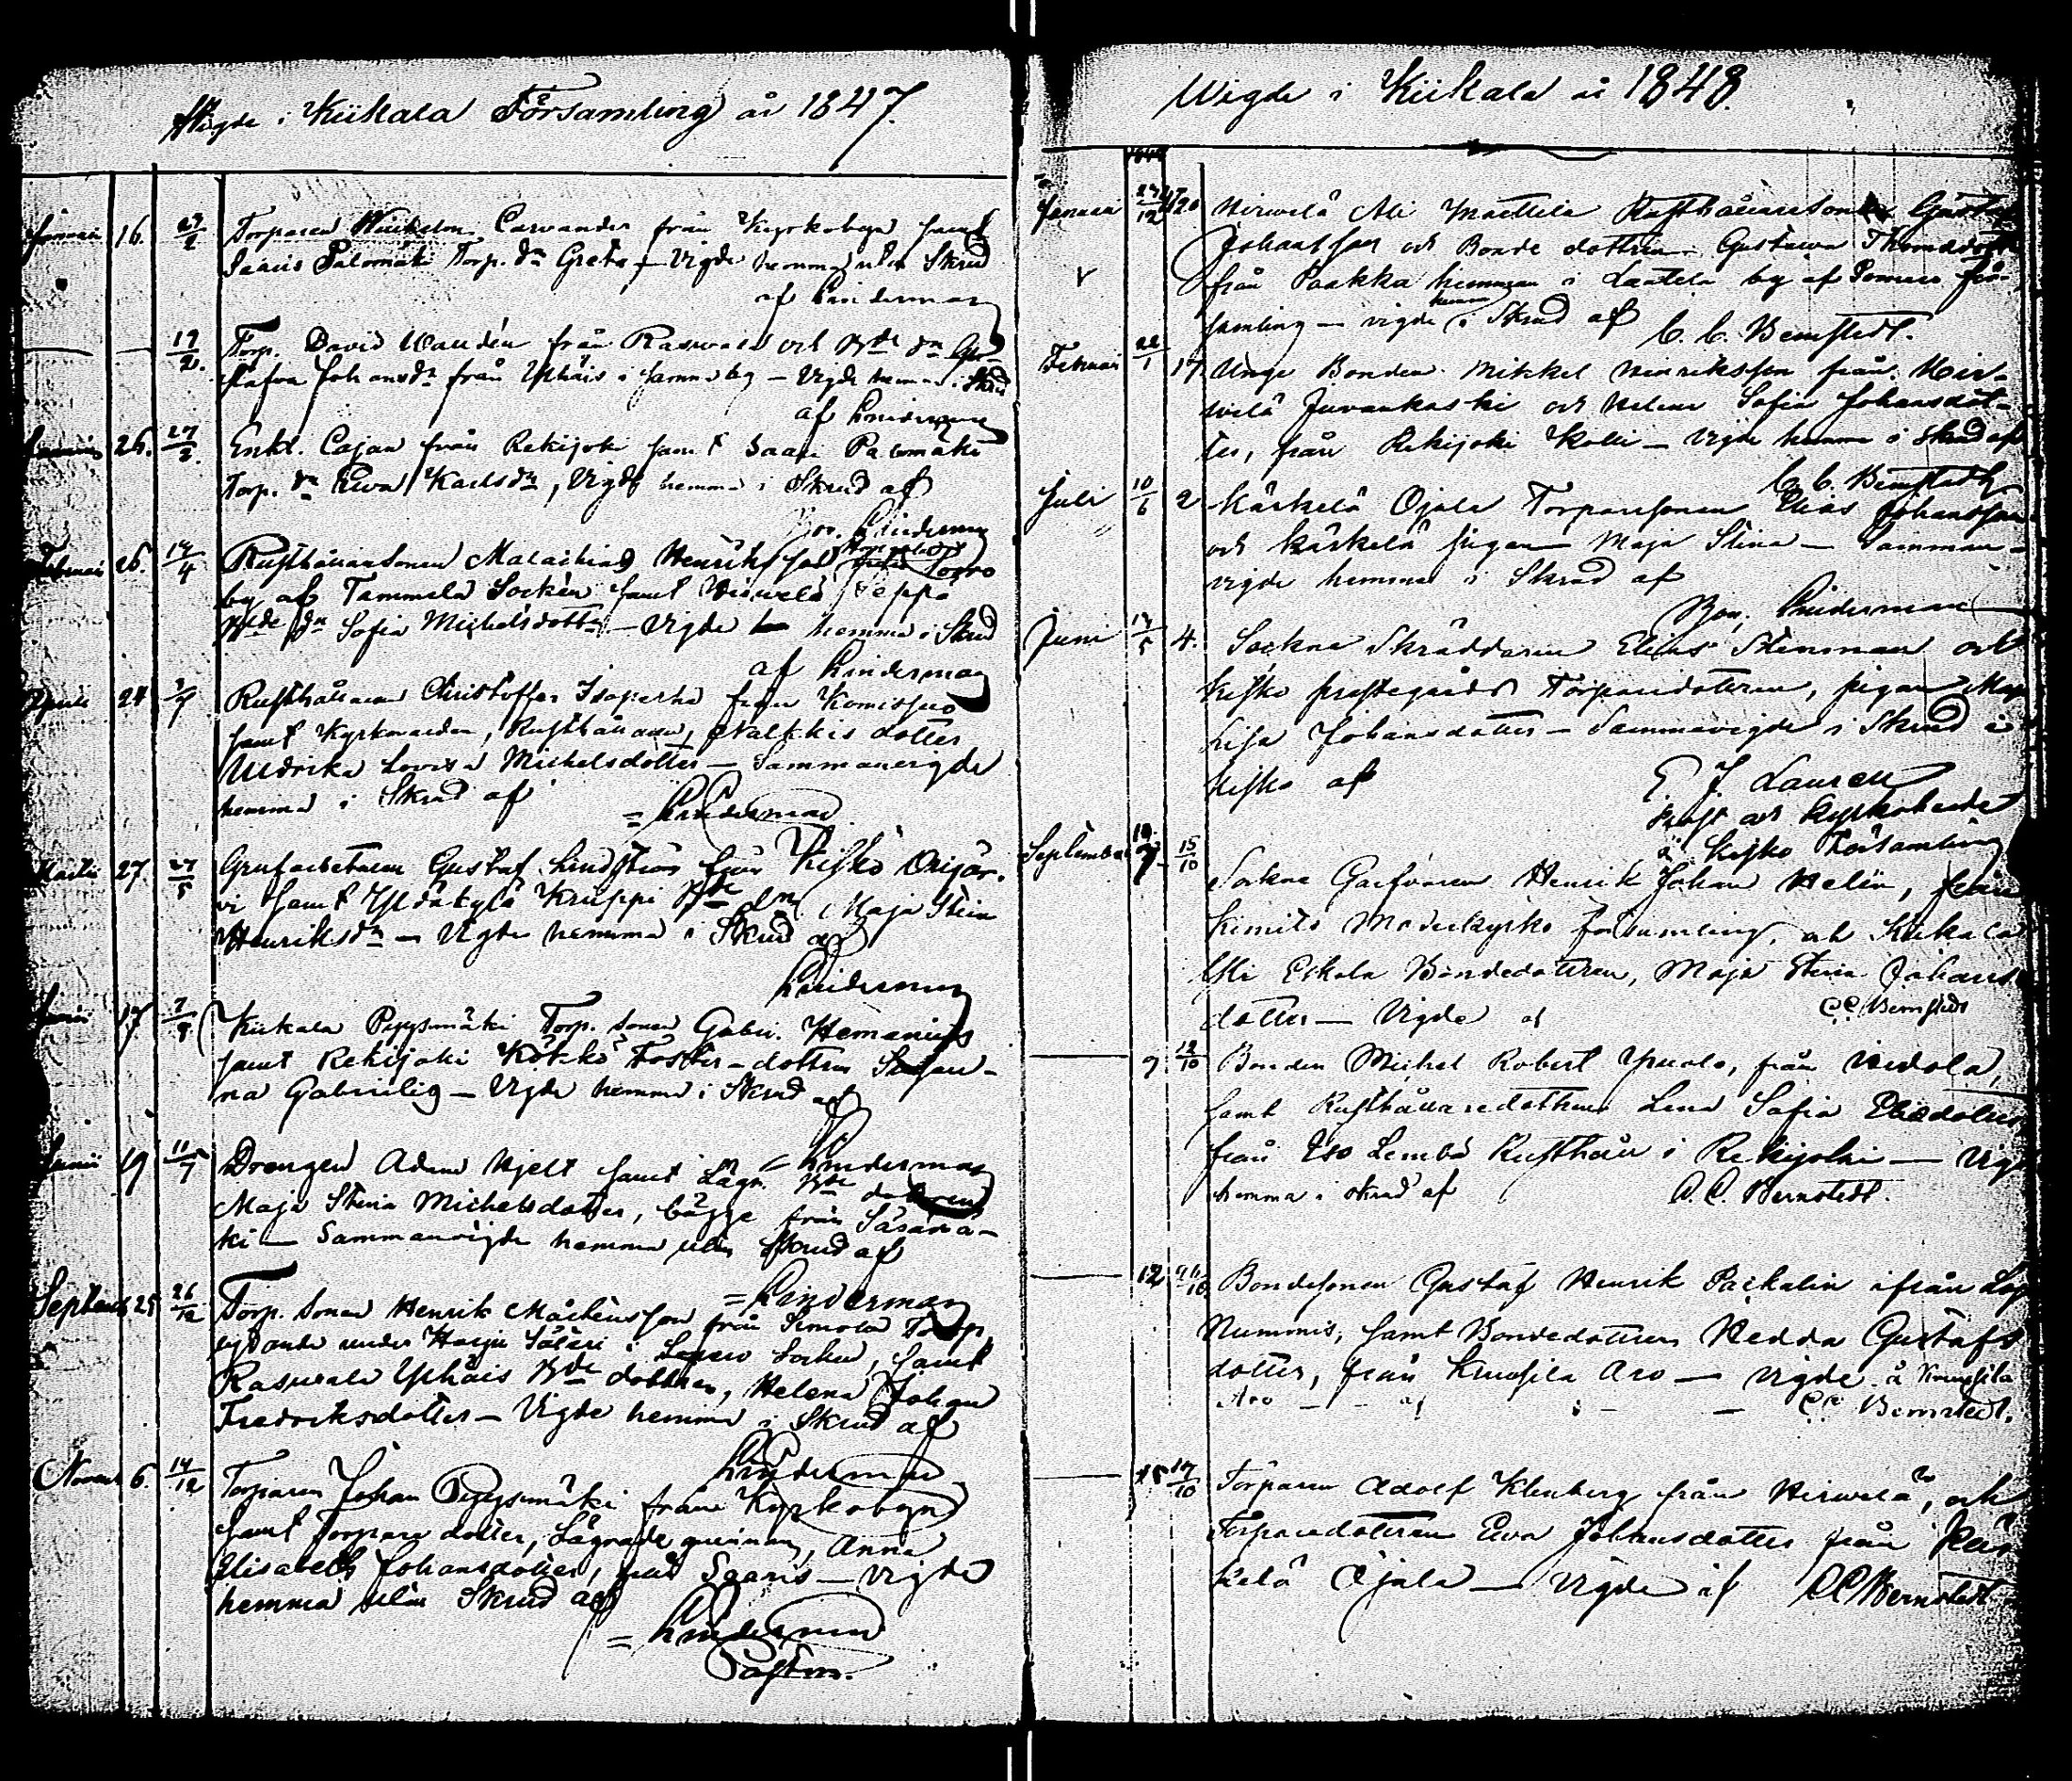 Wigde i Kiikala Församling år 1847.
16. 27/2 Torparen Carvander från Kyrkobyn samt
Saaris Palomäki Torp. dn Greta — Vigde hemma utan Skrud
af Linderman
19/2. Torp. David från Rasvala och Bde dn Gu-
stafva Johansdr från Yhäis i samma by — Vigde hemma i Skrud
af Linderman
26. 27/3. Enkl. Cajan från Rekijoki samt Saari Palomäki
Torp. dn Ewa Karlsdr, Vigde hemma i Skrud af
Linderman
Februari 26. 14/4 Rusthållaresonen Malachias Henriksson
by af Tammela Socken samt Hirvelä Seppä
Bde dn Sofia Michelsdotter — Vigde hemma i Skrud
af Linderman
Aprili 24 Rusthållaren Christoffer Isoperha från Komisuo
samt Kyrkovärden, Rusthållaren, Nalkkis dotter
Uldrika Lovisa Michelsdotter — Sammanvigde
hemma i Skrud af
= Linderman
27. 27/5 Grufarbetaren Gustaf Lindström från Kisko Orijär-
vi samt Yldäkylä Kruppi Bde dn Maja Stina
Henriksdr — Vigde hemma i Skrud af
Linderman
17. Kiikala Pyysmäki Torp. sonen Gabr. Hemenius
samt Rekijoki Kokko Foster-dottren Susan-
na Gabrielig — Vigde hemma i Skrud af
= Linderman
19 11/7 Drengen Adam Hjelt samt Lägr. Bde dottren
Maja Stina Michelsdotter, bägge från Säsämä-
ki — Sammanvigde hemma utan Skrud af
= Linderman
Septemb 25 26/12 Torp. sonen Henrik Mårtensson från Simola Torp,
lydande under Harju Säteri i Socken, samt
Rasvala Yhäis Bde dottren, Helena Johan
Fredriksdotter — Vigde hemma i Skrud af
Linderman
Novemb 6. 14/12 Torparen Johan Pyysmäki från Kyrkobyn
samt Torpare dotter, Lägrade qvinnan, Anna
Elisabeth Johansdotter, från Saaris — vigde
hemma utan Skrud af
= Linderman
Pastor.
Wigde i Kiikala år 1848.
Januari 27/12 20 Hirvelä Ali Mattila Rusthållaresonen Gustaf
Johansson och Bonde dottren Gustava Thomasdotter
från Paakka hemman i Laatila by af Somero för-
samling — vigde hemma i Skrud af
C. C. Bernstedt.
Februari 22/1 17 Unge Bonden Mikkel Henriksson från Hir-
velä Juvankoski och Helena Sofia Johansdot-
ter, från Rekijoki Kolli — Vigde hemma i Skrud af
C. C. Bernstedt
Juli 10/6 2 Kärkelä Ojala Torparesonen Elias Johansson
och Kärkelä pigan Maja Stina — Samman-
vigde hemma i Skrud af
Linderman
Juni 4. Sockne Skräddaren Elias Stenman och
Kisko prestegårds Torparedottren, pigan Maja
Lisa Johansdotter — Sammanvigde i Skrud i
Kisko af
E. J. Lauren
Prost och Kyrkoherde
i Kisko Församling
September 7 15/10 Sockne Garfvaren Henrik Johan Helin, från
Kimito Moderkyrko församling, och Kiikala
Eskola Bondedottren, Maja Stina Johans
dotter — Vigde af CC Bernstedt
7 12/10 Bonden Michel Robert från
samt Rusthållaredottren Lena Sofia Eliedotter
från Iso Lemba Rusthåll i Rekijoki — Vigde
hemma i skrud af C. C. Bernstedt.
12 Bondesonen Gustaf Henrik Packalin ifrån Lojo
Nummis, samt Bondedottren Hedda Gustafs
dotter, från Kruusila Aro — Vigde å Kruusila
Aro — af — CC Bernstedt.
15 17/10 Torparen Adolf Klenberg från Hirvelä, och
Torparedottren Ewa Johansdotter från Kär
kelä Ojala — Vigde af CC Bernstedt